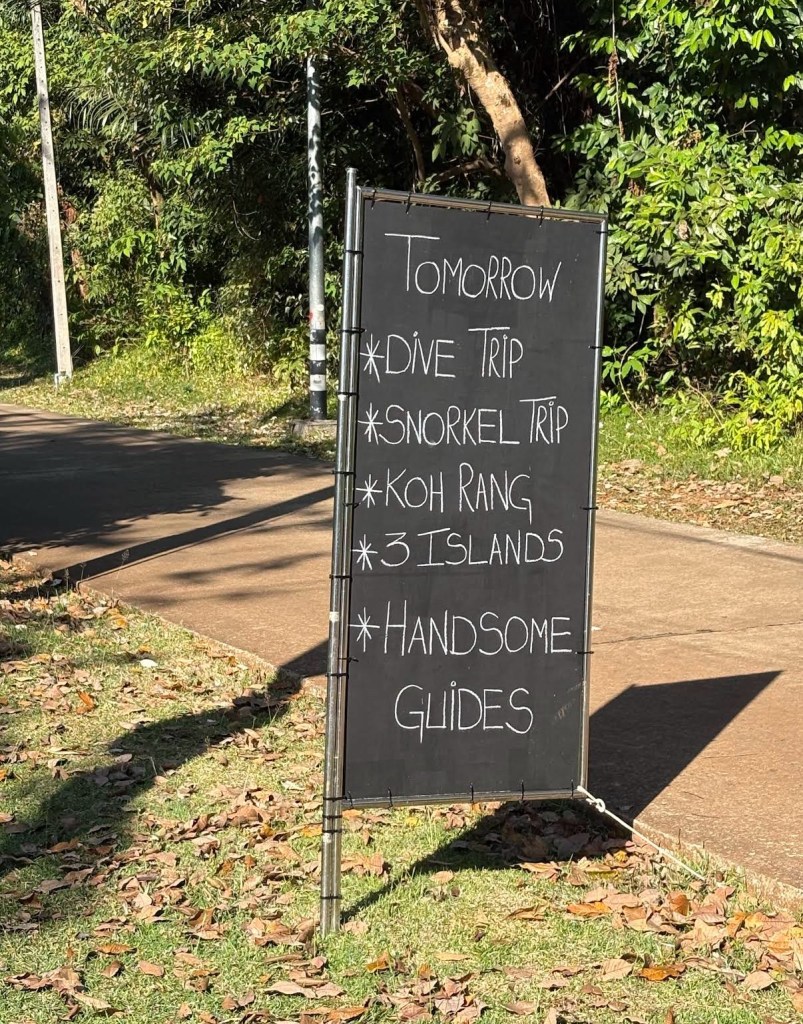 TOMORROW
*DIVE TRIP
*SNORKEL TRIP
*KOH RANG
*3 ISLANDS
*HANDSOME
GUIDES